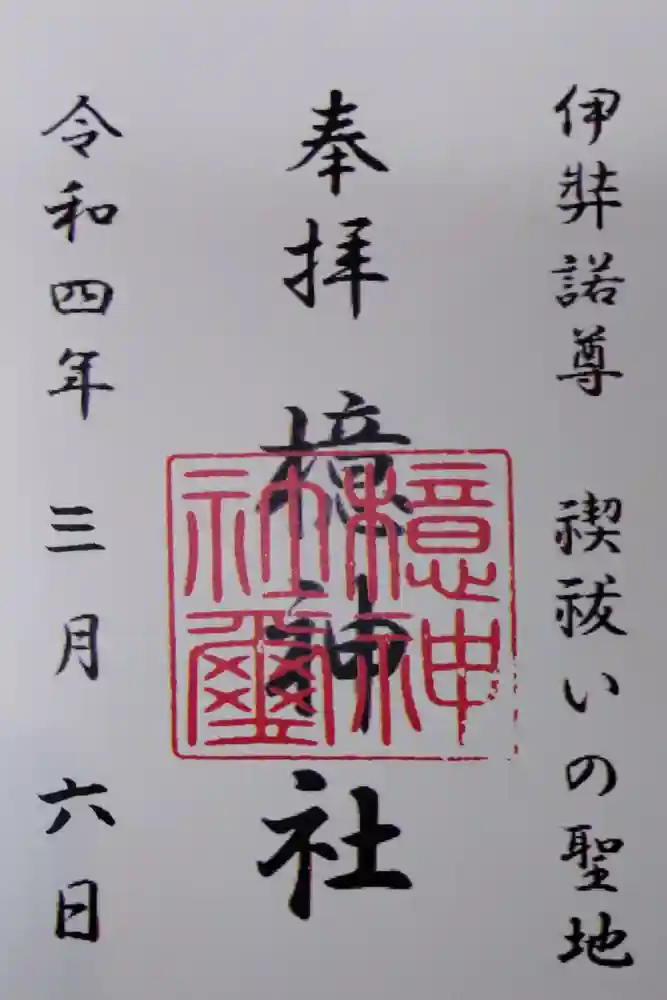 伊弉諾尊 禊祓いの聖地
奉拝 檍神社
檍神社璽
令和四年 三月 六日